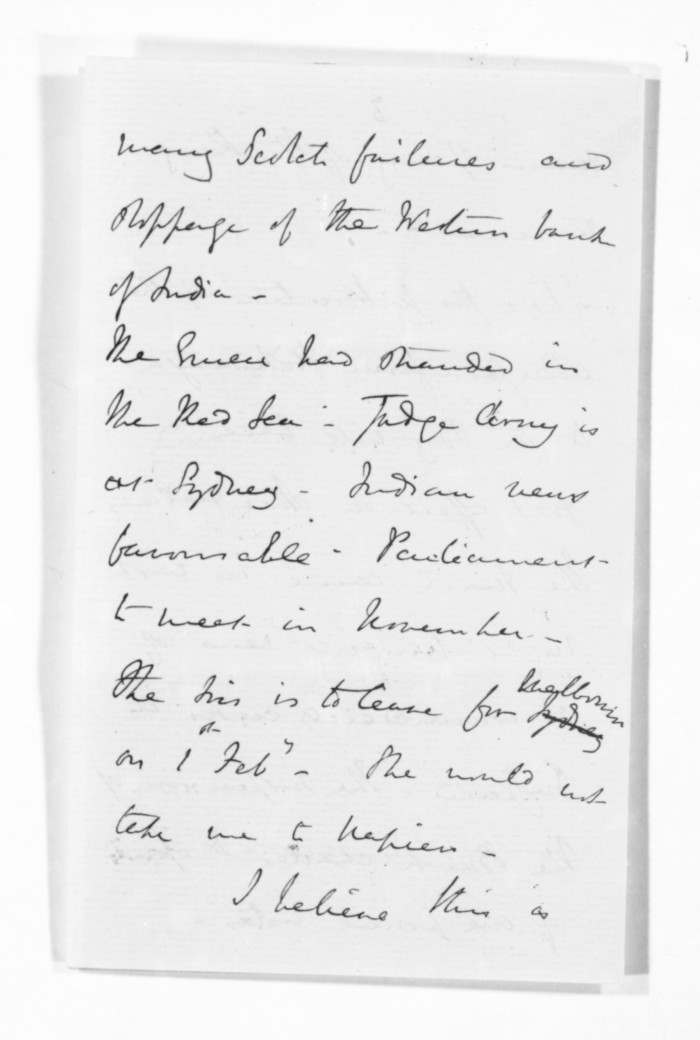 many Scotch failures and
stoppage of the Western bank
of India -
The Emeu had stranded in
the Red Sea - Judge Corney is
at Sydney - Indian news
favourable - Parliament
to meet in November -
The Iris is to leave for Sydney Melbourne
on 1st Feby - She would not
take me to Napier -
I believe this is